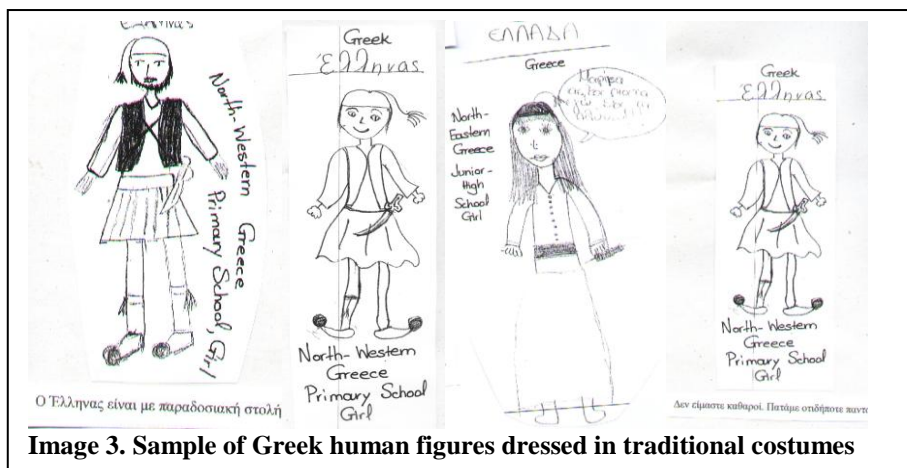 Έλληνας
North-Western Greece
Primary School, Girl
Ο Έλληνας είναι με παραδοσιακή στολή
Greek
Έλληνας
North-Western
Greece
Primary School
Girl
ΕΛΛΑΔΑ
Greece
North-
Eastern
Greece
Junior-
High
School
Girl
Greek
Έλληνας
North-Western
Greece
Primary School
Girl
Δεν είμαστε καθαροί. Πατάμε οτιδήποτε
Image 3. Sample of Greek human figures dressed in traditional costumes